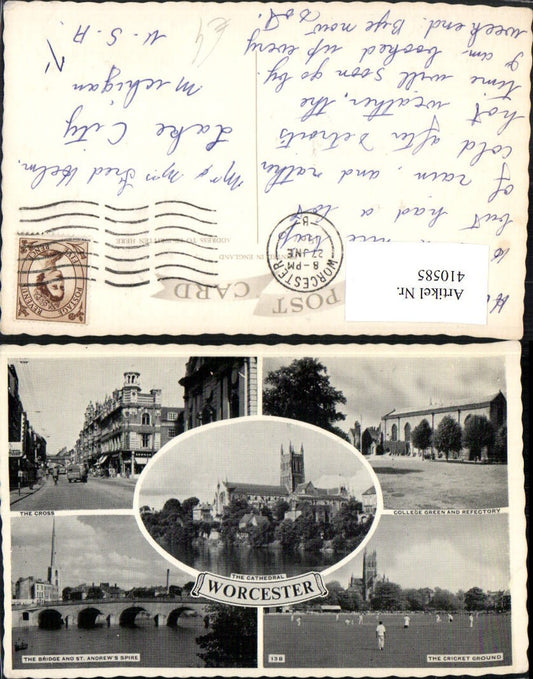 Artikel Nr.
410585
POST CARD
ADDRESS TO BE WRITTEN HERE
WORCESTER
8 - PM
22 JNE
- B -
POSTAGE
REVENUE
but had a lot
of rain, and rather
cold after Detroits
hot weather, the
time will soon go by.
I am booked up every
weekend. Bye now
Mrs & Mr Fred Helm.
Lake City
Michigan
U. S. A
THE CROSS
COLLEGE GREEN AND REFECTORY
THE CATHEDRAL
WORCESTER
THE BRIDGE AND ST. ANDREW'S SPIRE
13B
THE CRICKET GROUND